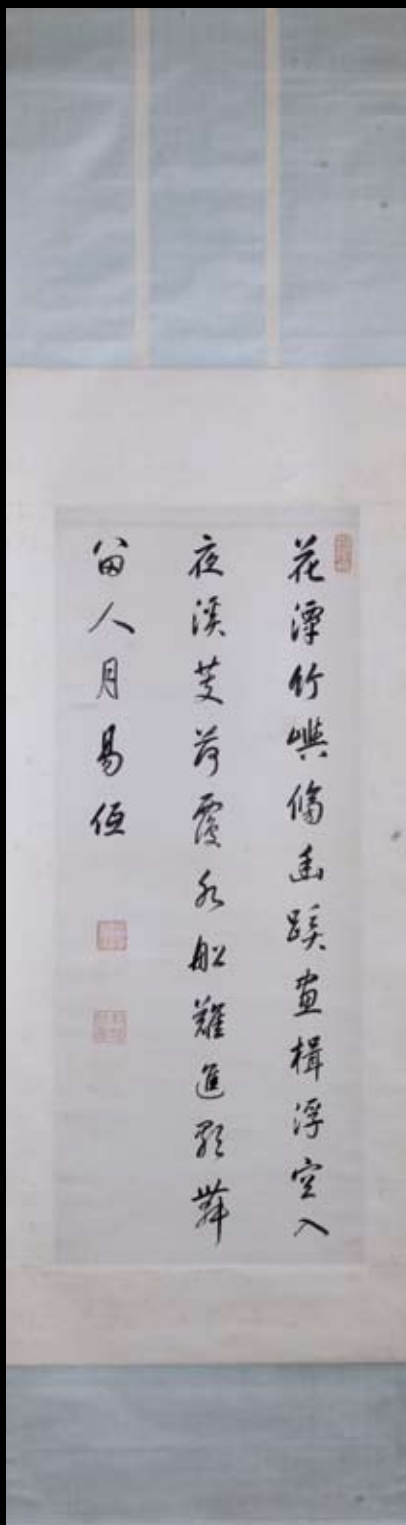 花潭竹嶼傍幽蹊畫楫浮空入
夜溪芰荷覆水船難進歌舞
留人月易低